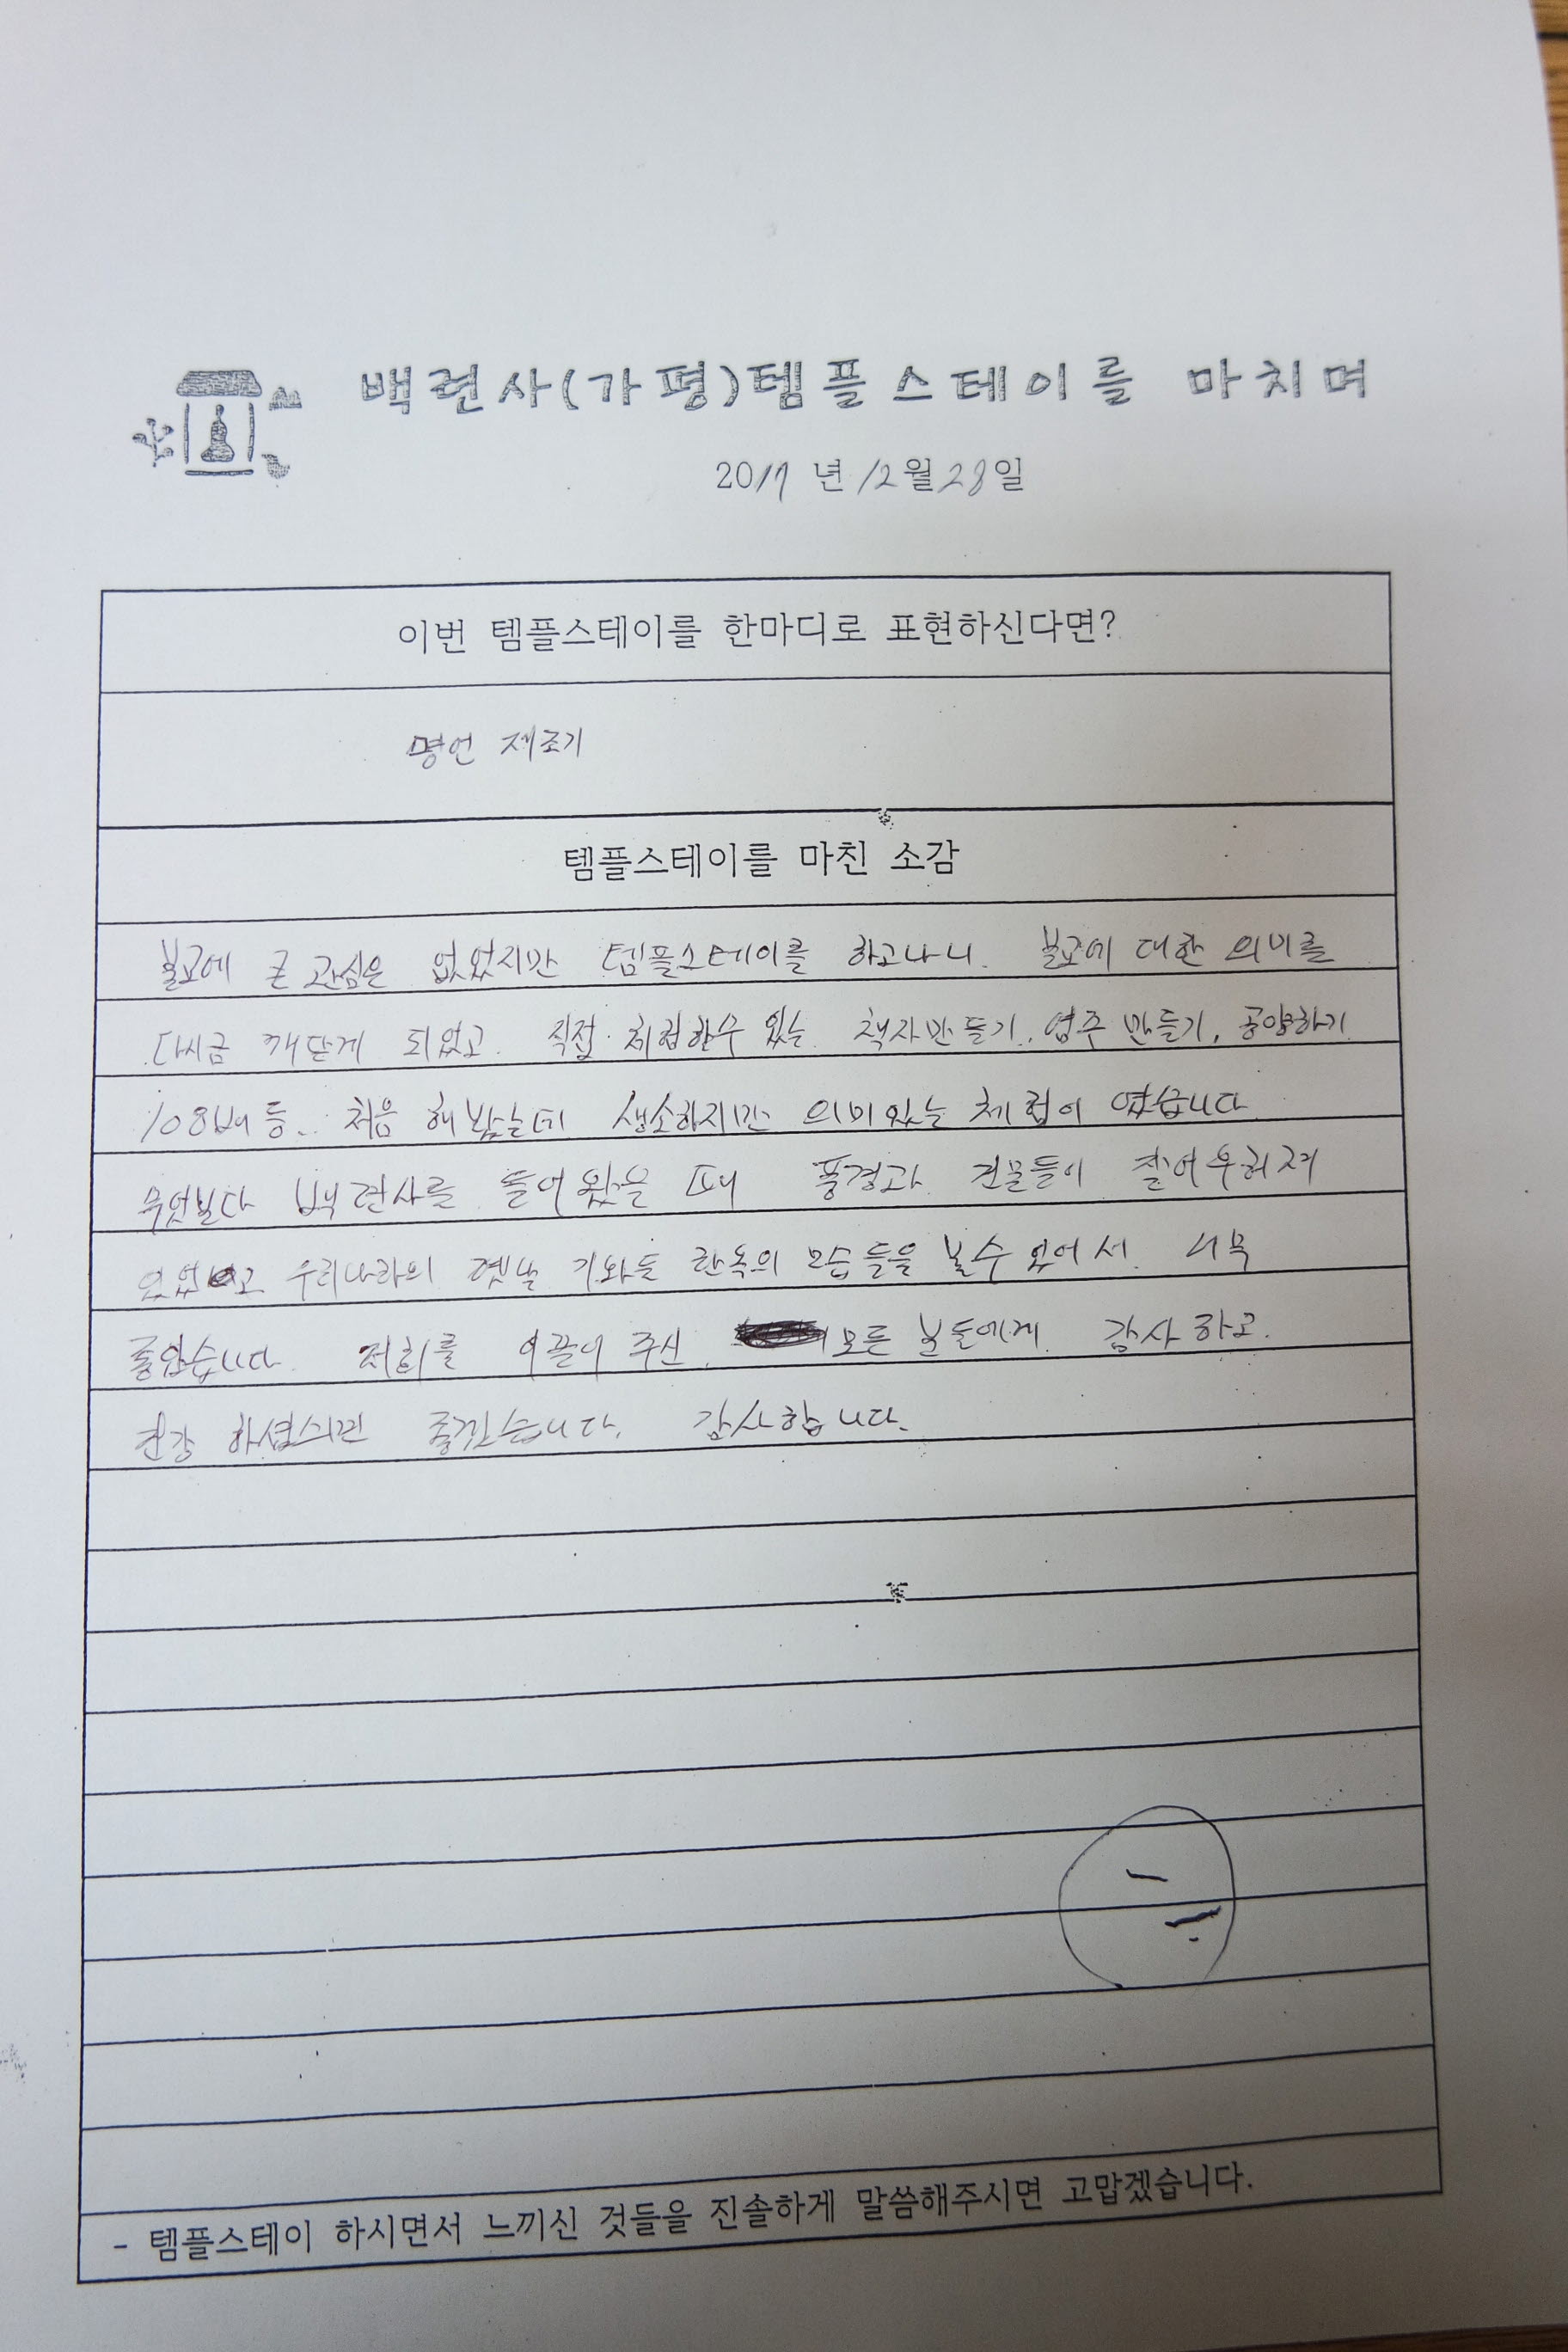 백련사(가평)템플스테이를 마치며
2017 년 12월 28일
이번 템플스테이를 한마디로 표현하신다면?
명언 제조기
템플스테이를 마친 소감
불교에 큰 관심은 없었지만 템플스테이를 하고나니 불교에 대한 의미를
다시금 깨닫게 되었고 직접 체험할수 있는 책자만들기, 염주 만들기, 공양하기
108배 등.. 처음 해봤는데 생소하지만 의미있는 체험이 였습니다
무엇보다 백련사를 들어왔을 때 풍경과 건물들이 잘어우러져
있었고 우리나라의 옛날 기와들 한옥의 모습들을 볼수있어서 너무
좋았습니다 저희를 이끌어 주신 모든 분들에게 감사하고
건강 하셨으면 좋겠습니다. 감사합니다.
- 템플스테이 하시면서 느끼신 것들을 진솔하게 말씀해주시면 고맙겠습니다.